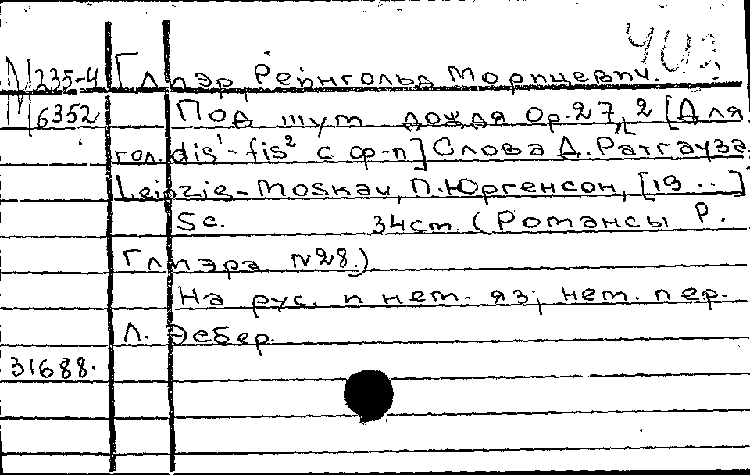 М 235-4 Глиэр, Рейнгольд Морицевич.
6352 Под шум дождя Op. 27, 2 [Для
гол. dis¹-fis² с ф-п] Слова Д. Ратгауза
Leipzig-Moskau, П. Юргенсон, [19 ..]
5c. 34cm. (Романсы Р.
Глиэра №28.)
На рус. и нем. яз; нем. пер.
Л. Эсбер
31688.